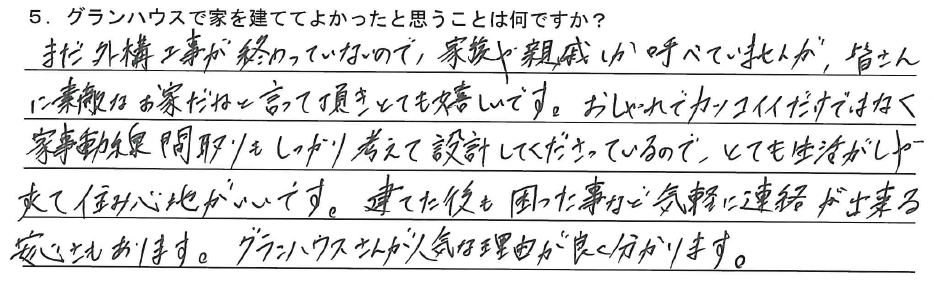 5. グランハウスで家を建ててよかったと思うことは何ですか?
まだ外構工事が終わっていないので、家族や親戚しか呼べていませんが、皆さん
に素敵なお家だねと言って頂きとても嬉しいです。おしゃれでカッコイイだけではなく
家事動線間取りもしっかり考えて設計してくださっているので、とても生活がしや
すくて住み心地がいいです。建てた後も困った事など気軽に連絡が出来る
安心さもあります。グランハウスさんが人気な理由が良く分かります。